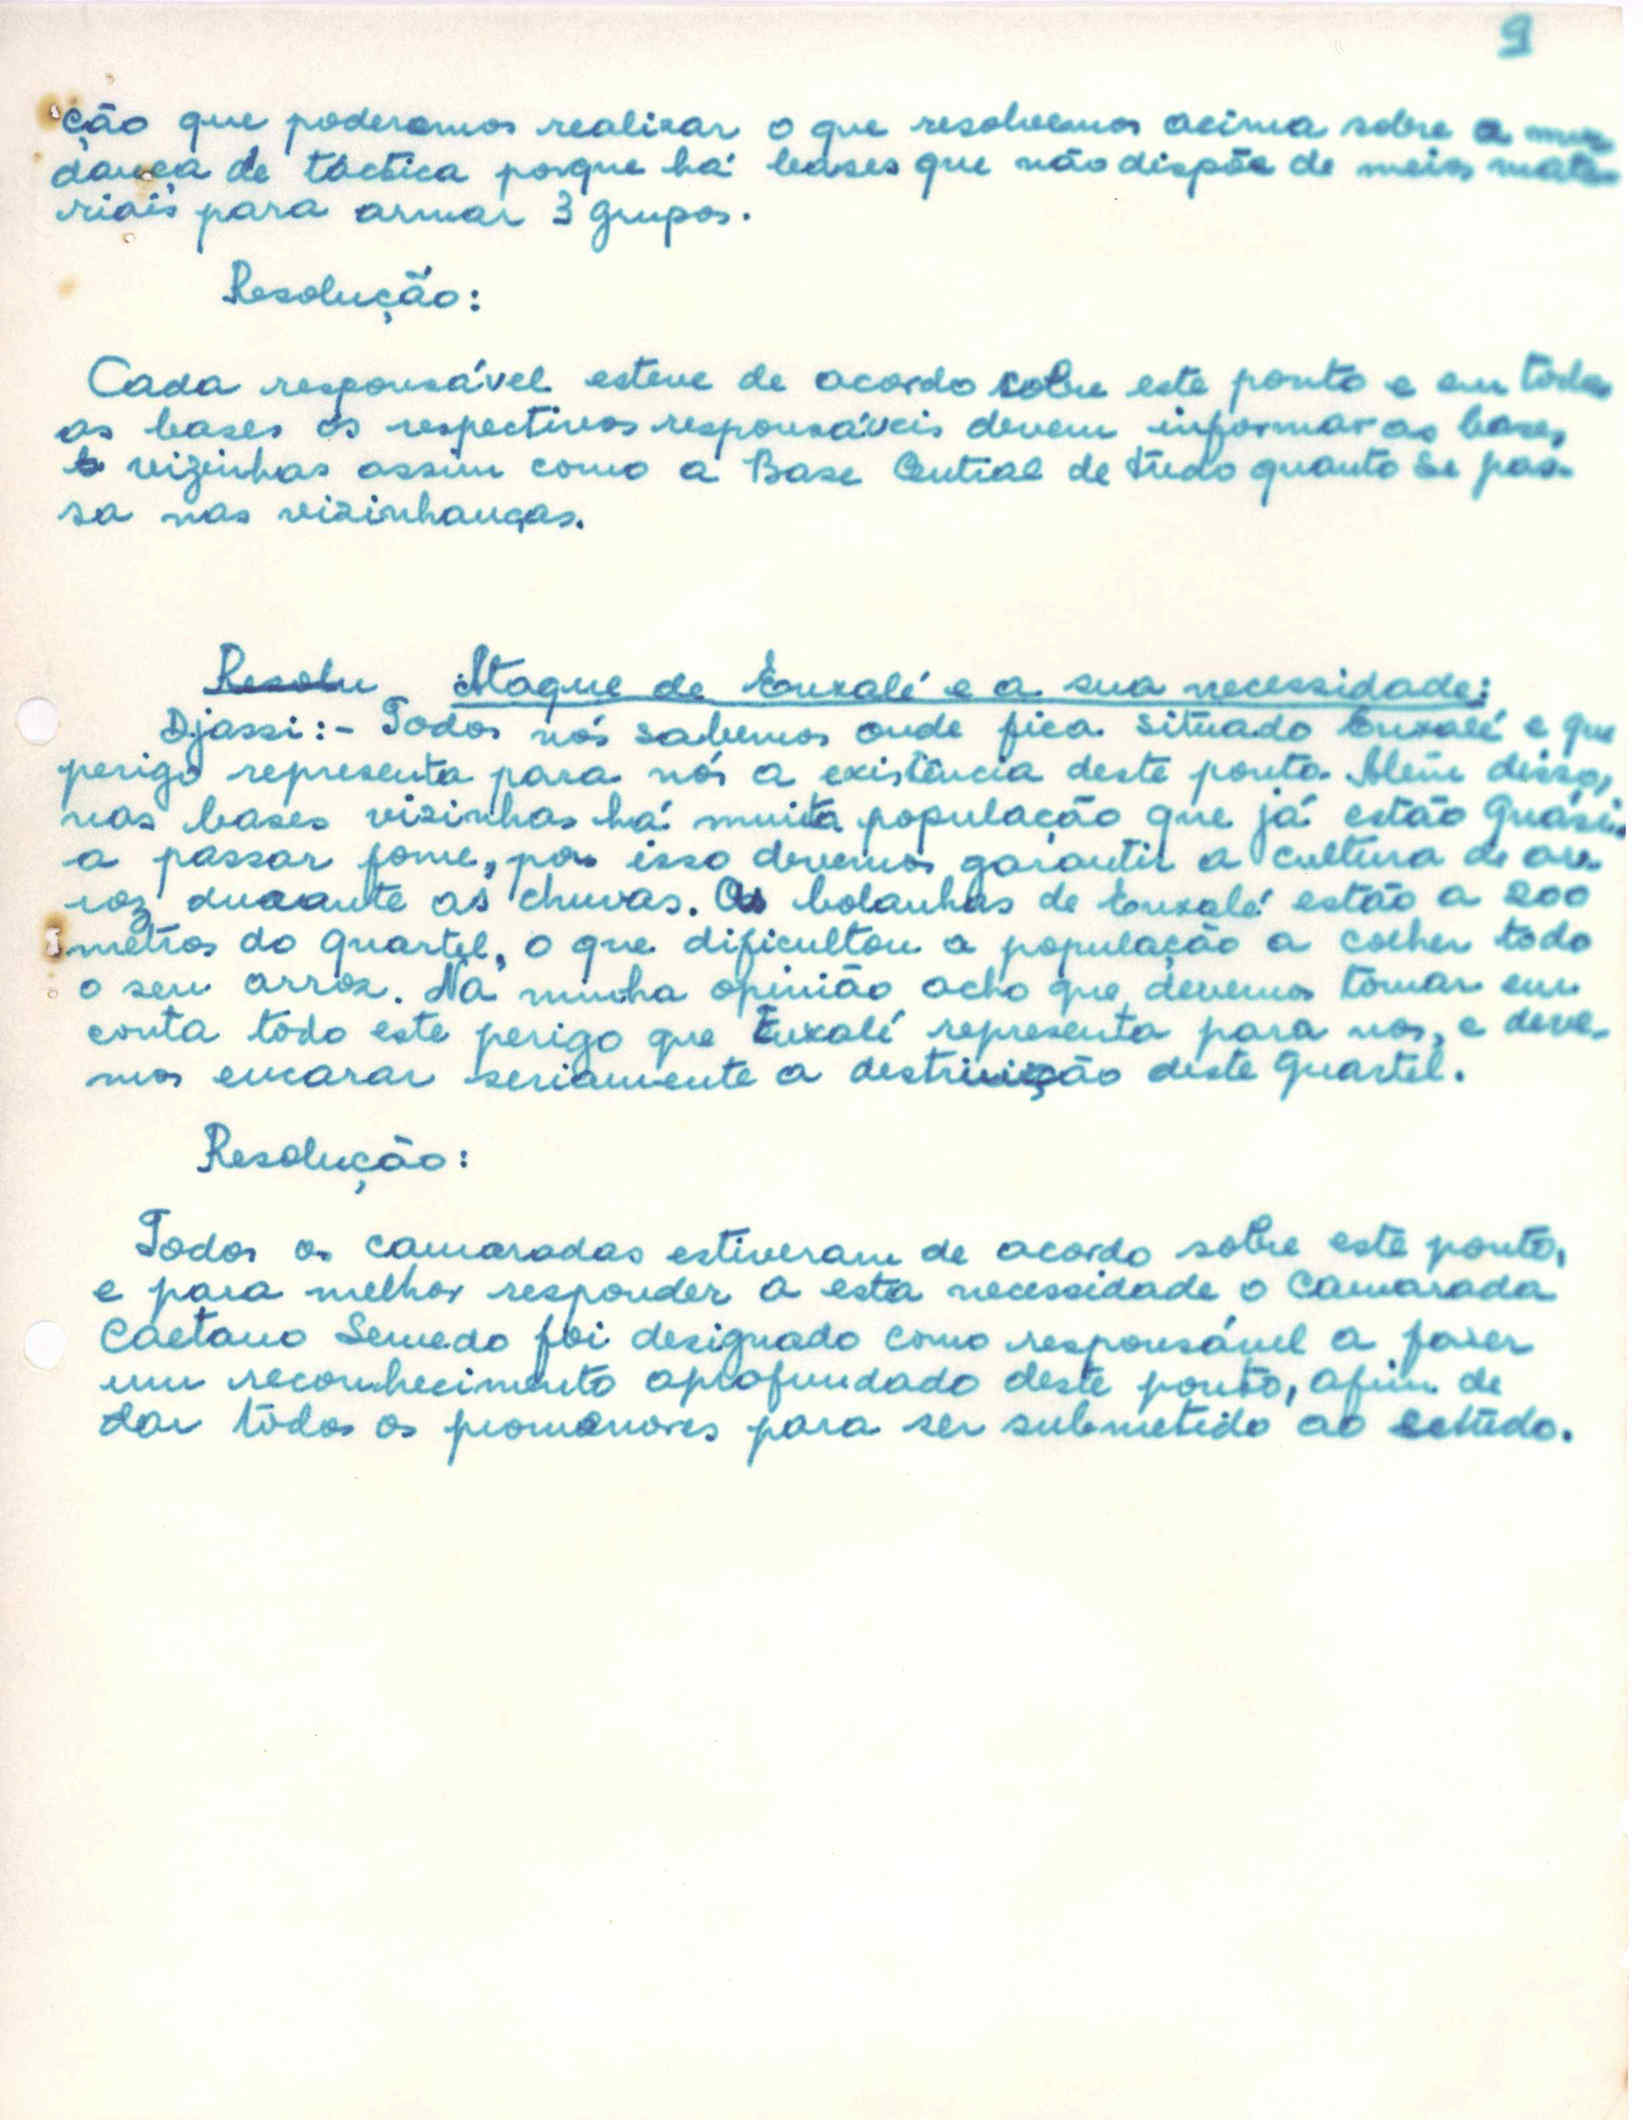 9
ção que poderemos realizar o que resolvemos acima sobre a mu-
dança de táctica porque há bases que não dispõe de meios mate-
riais para armar 3 grupos.
Resolução:
Cada responsável esteve de acordo sobre este ponto e em todas
as bases os respectivos responsáveis devem informar as bases
vizinhas assim como a Base Central de tudo quanto se pas-
sa nas vizinhanças.
Resolu Ataque de Enxalé e a sua necessidade:
Djassi:- Todos nós sabemos onde fica situado Enxalé e que
perigo representa para nós a existência deste ponto. Além disso,
nas bases vizinhas há muita população que já estão quási
a passar fome, por isso devemos garantir a cultura de ar-
roz durante as chuvas. As bolanhas de Enxalé estão a 200
metros do quartel, o que dificultou a população a colher todo
o seu arroz. Na minha opinião acho que devemos tomar em
conta todo este perigo que Enxalé representa para nos, e deve-
mos encarar seriamente a destruição deste quartel.
Resolução:
Todos os camaradas estiveram de acordo sobre este ponto,
e para melhor responder a esta necessidade o Camarada
Caetano Semedo foi designado como responsável a fazer
um reconhecimento aprofundado deste ponto, afim de
dar todos os promenores para ser submetido ao estudo.